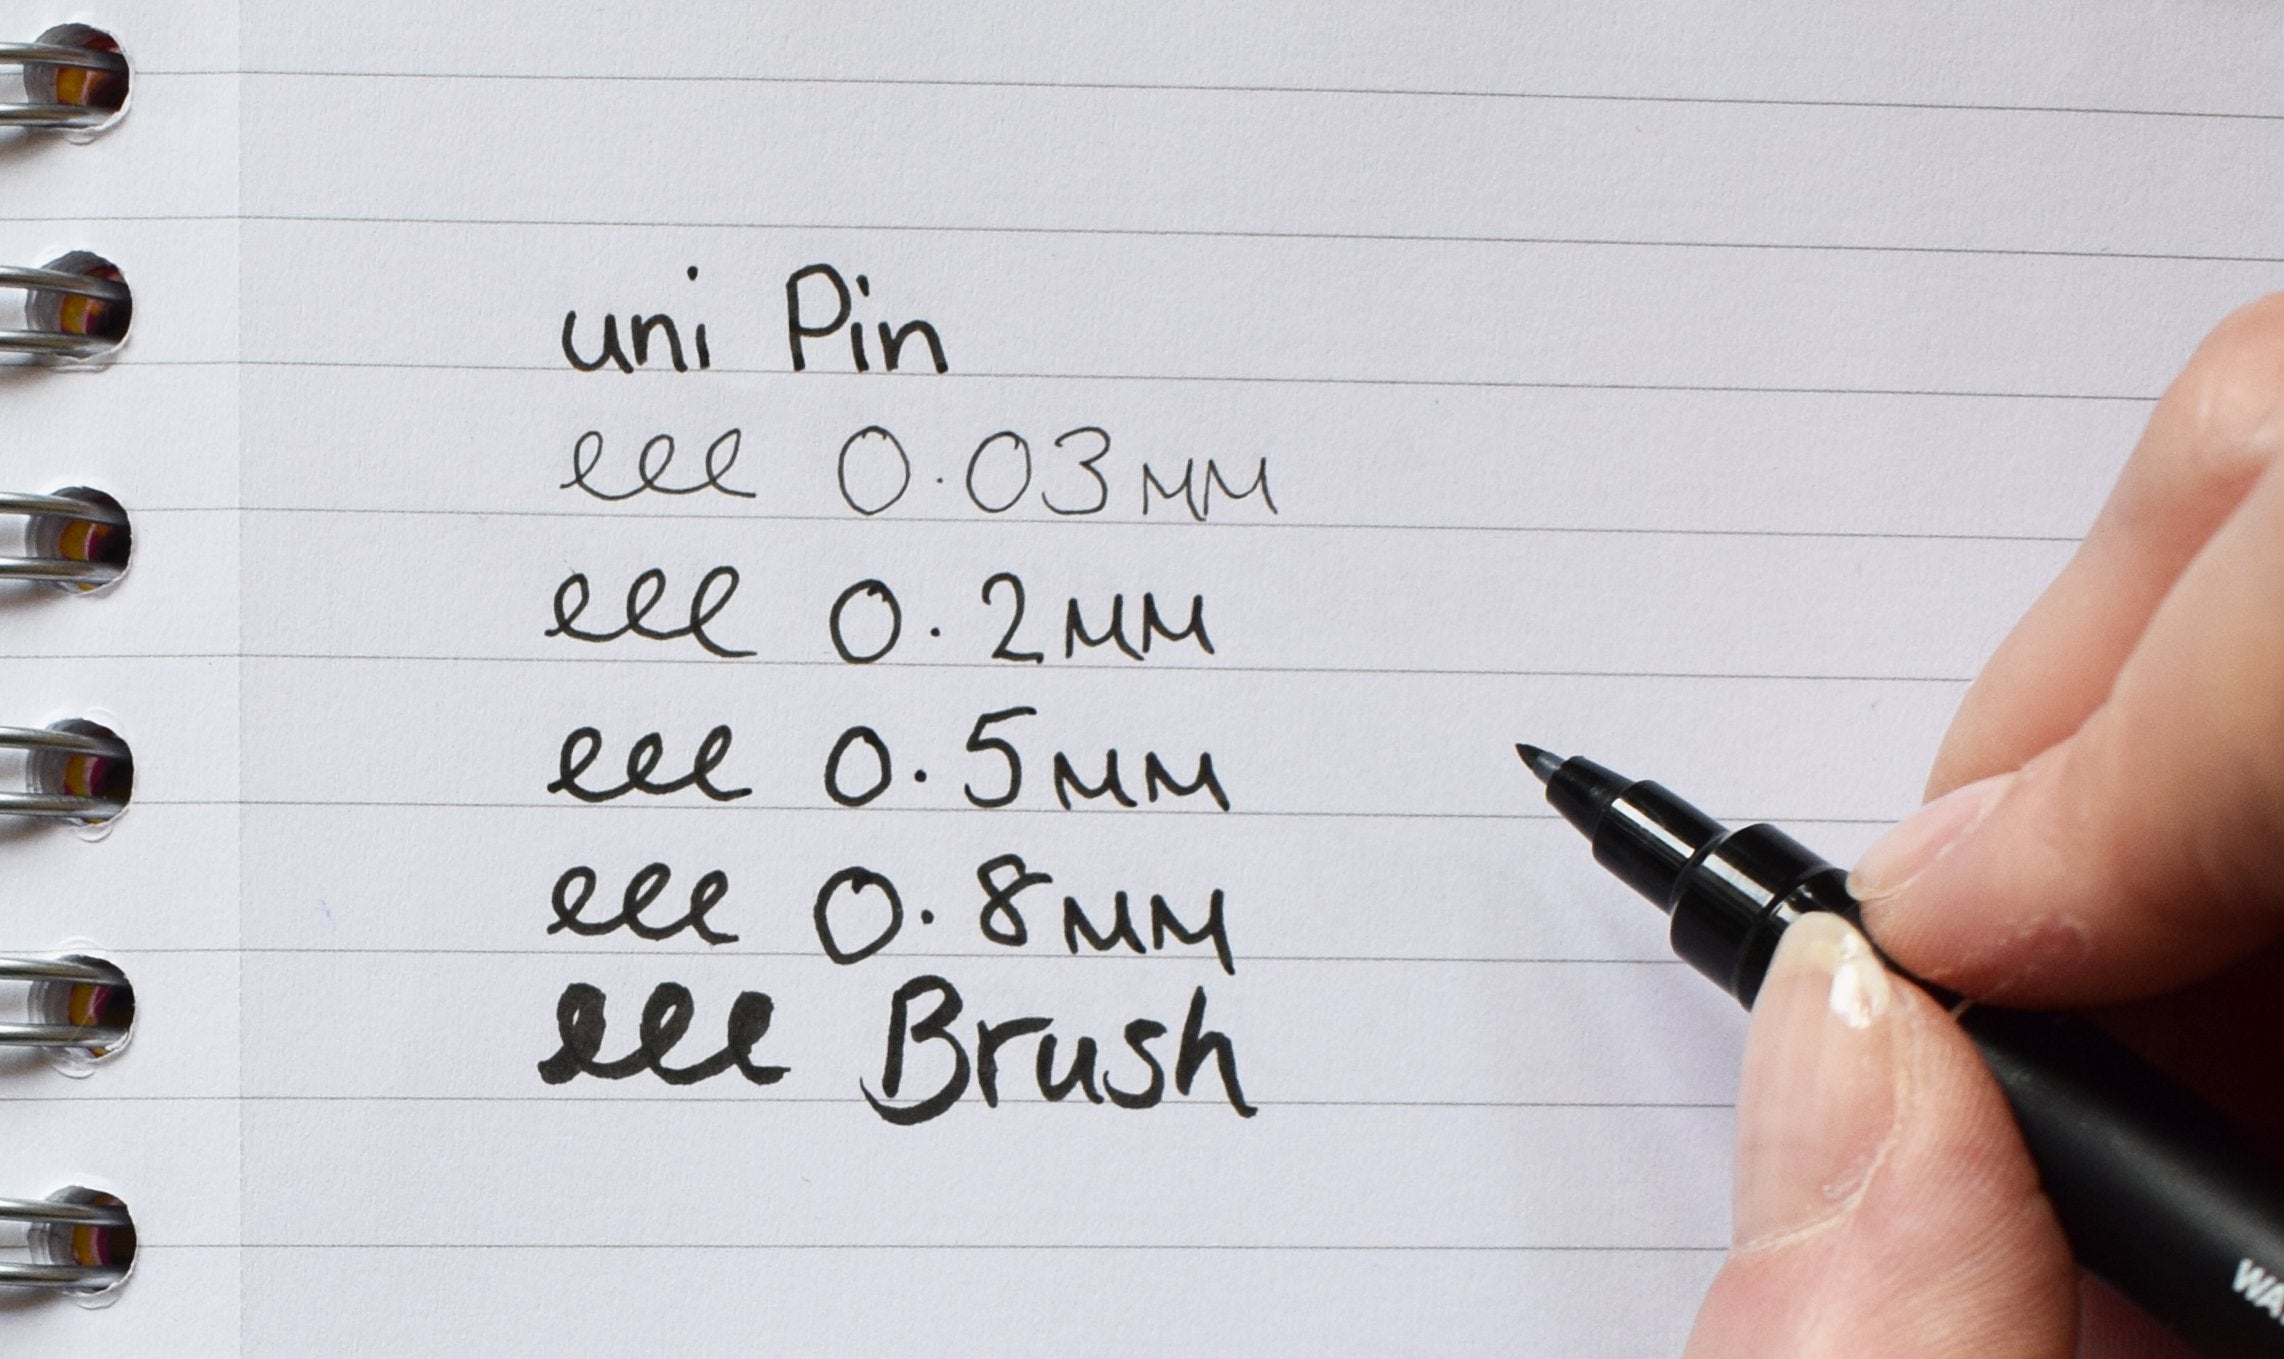 uni Pin
eee 0.03mm
eee 0.2mm
eee 0.5mm
eee 0.8mm
eee Brush